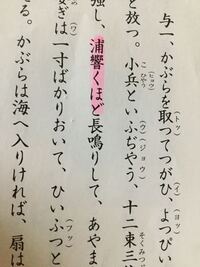 与一、かぶらを取つてつがひ、よつぴい
と放つ。小兵といふぢやう、十二束三
強し、浦響くほど長鳴りして、あやま
ぎは一寸ばかりおいて、ひいふつと
る。かぶらは海へ入りければ、扇は